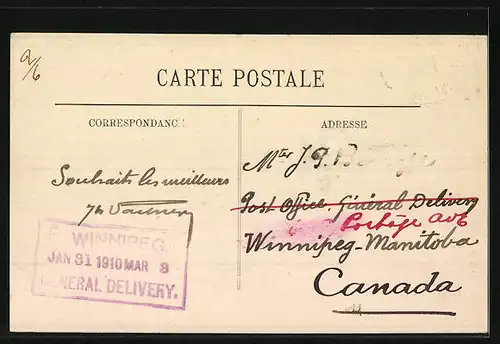 2/6
CARTE POSTALE
CORRESPONDANC
ADRESSE
Souhaits les meilleurs
Mter J. P.
Post Office General Delivery
Portage ave
Winnipeg - Manitoba
Canada
WINNIPEG
JAN 31 1910 MAR 8
GENERAL DELIVERY.